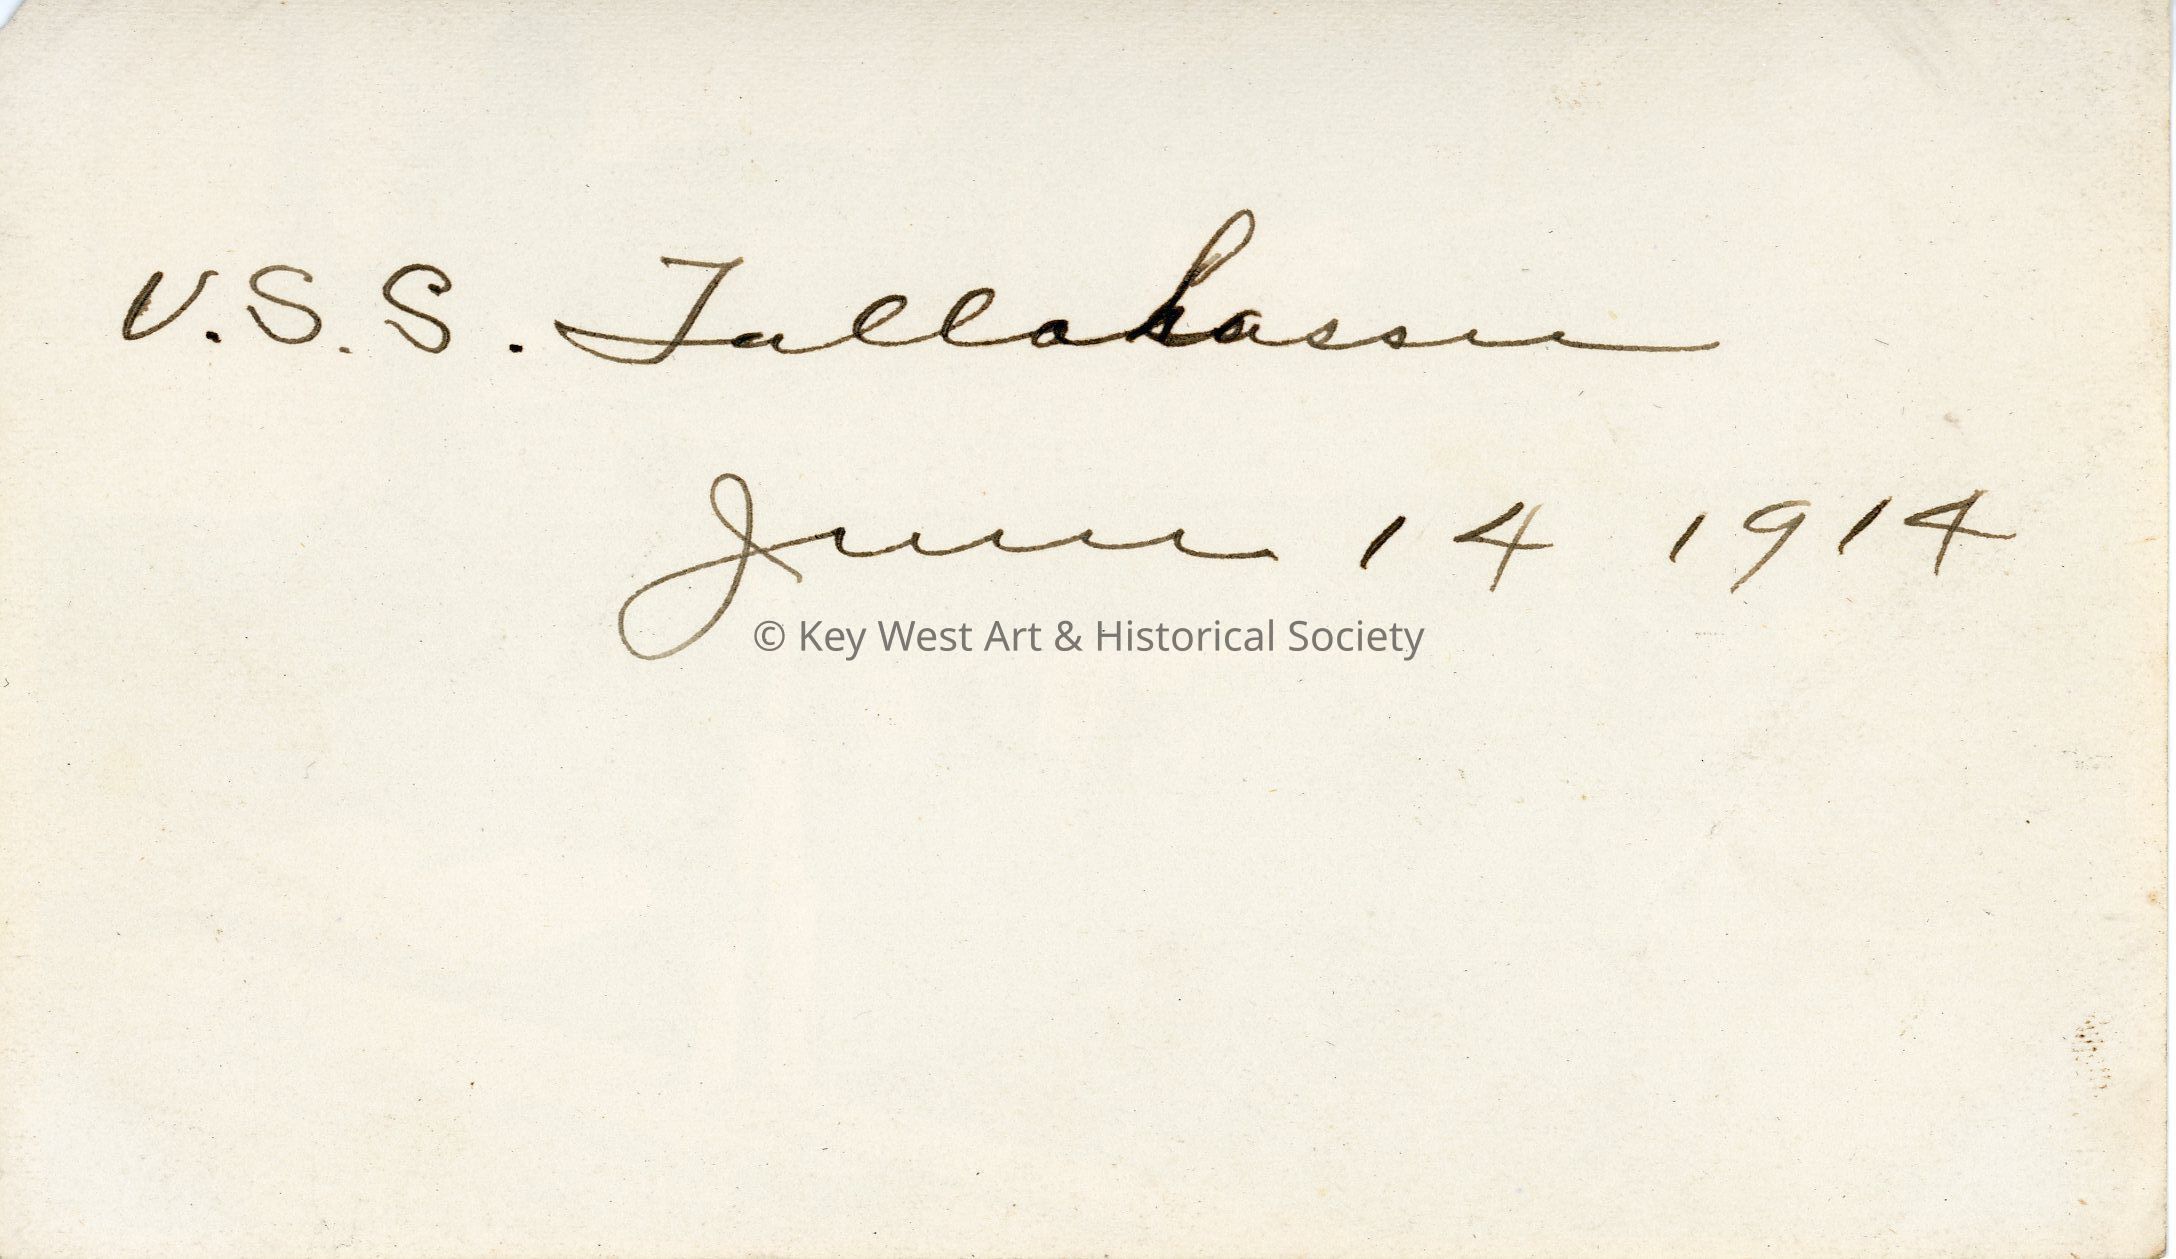 U.S.S. Tallahassee
June 14 1914
© Key West Art & Historical Society